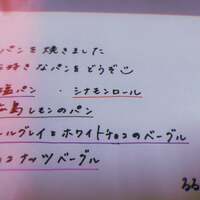 パンを焼きました
好きなパンをどうぞ
塩パン ・シナモンロール
島レモンのパン
ールグレイとホワイトチョコのベーグル
コナッツベーグル
るる